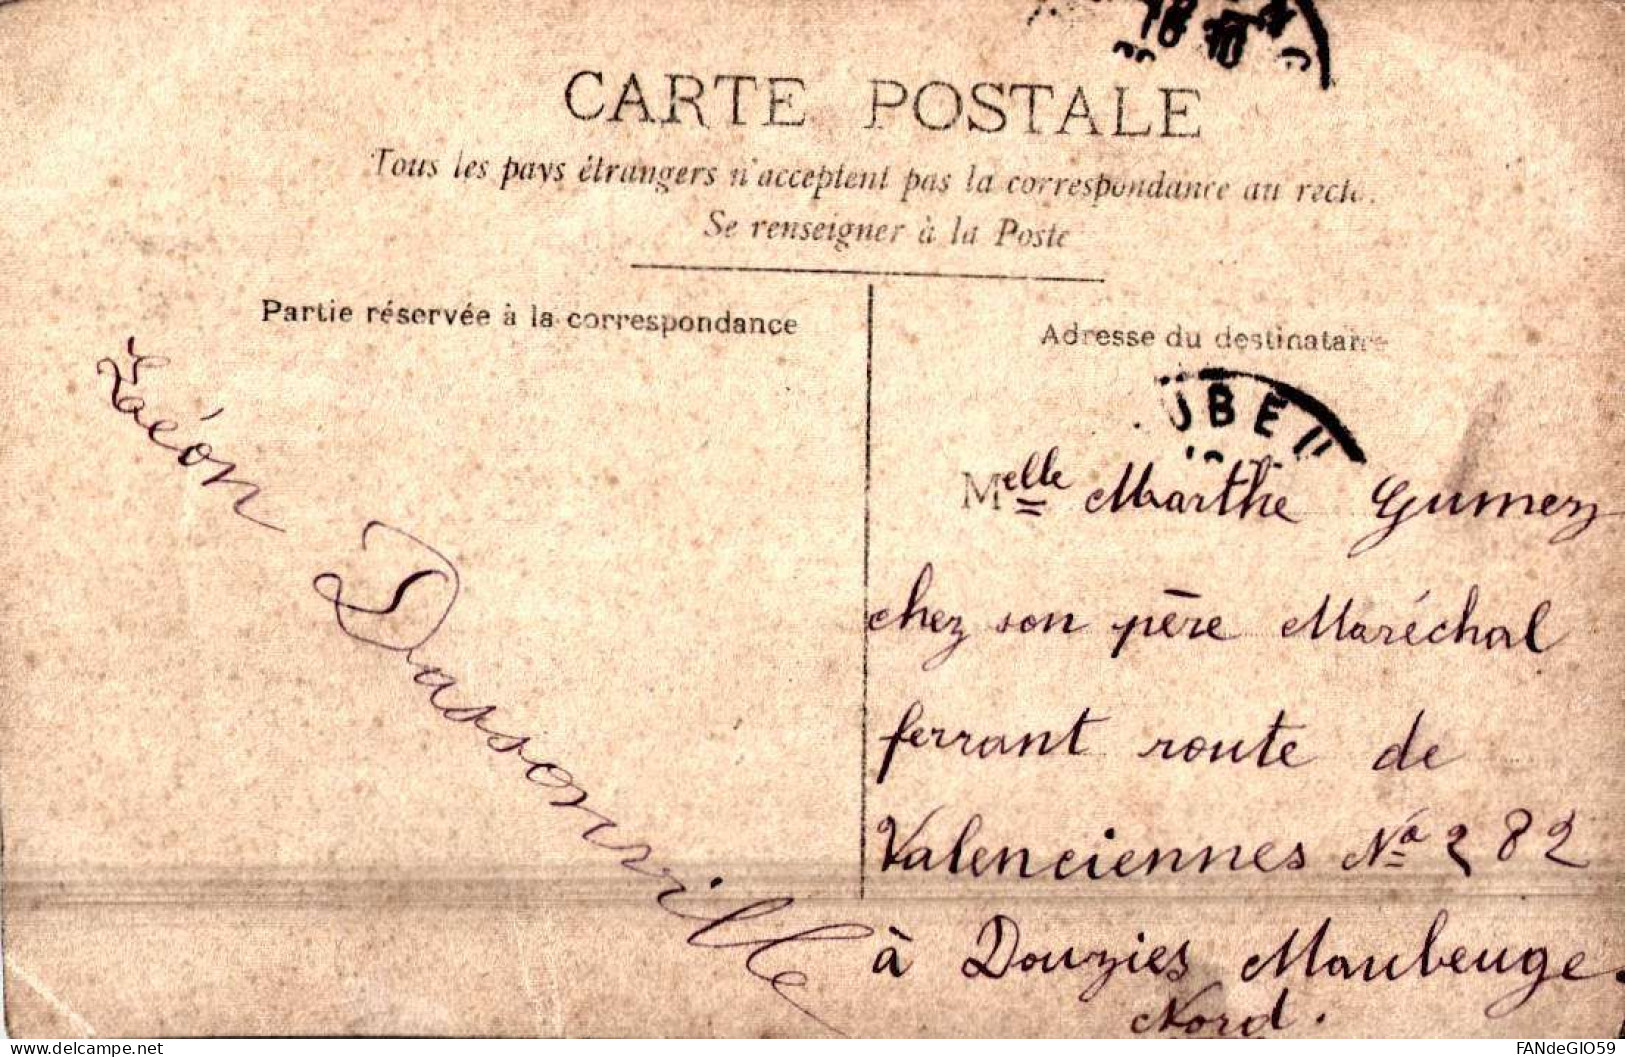 CARTE POSTALE
Tous les pays étrangers n'acceptent pas la correspondance au recto.
Se renseigner à la Poste
Partie réservée à la correspondance
Adresse du destinataire
Léon Dassonville
UBEU
Melle Marthe Gumez
chez son père Maréchal
ferrant route de
Valenciennes No 282
à Douzies Maubeuge.
Nord.
delcampe.net
FANdeGIO59